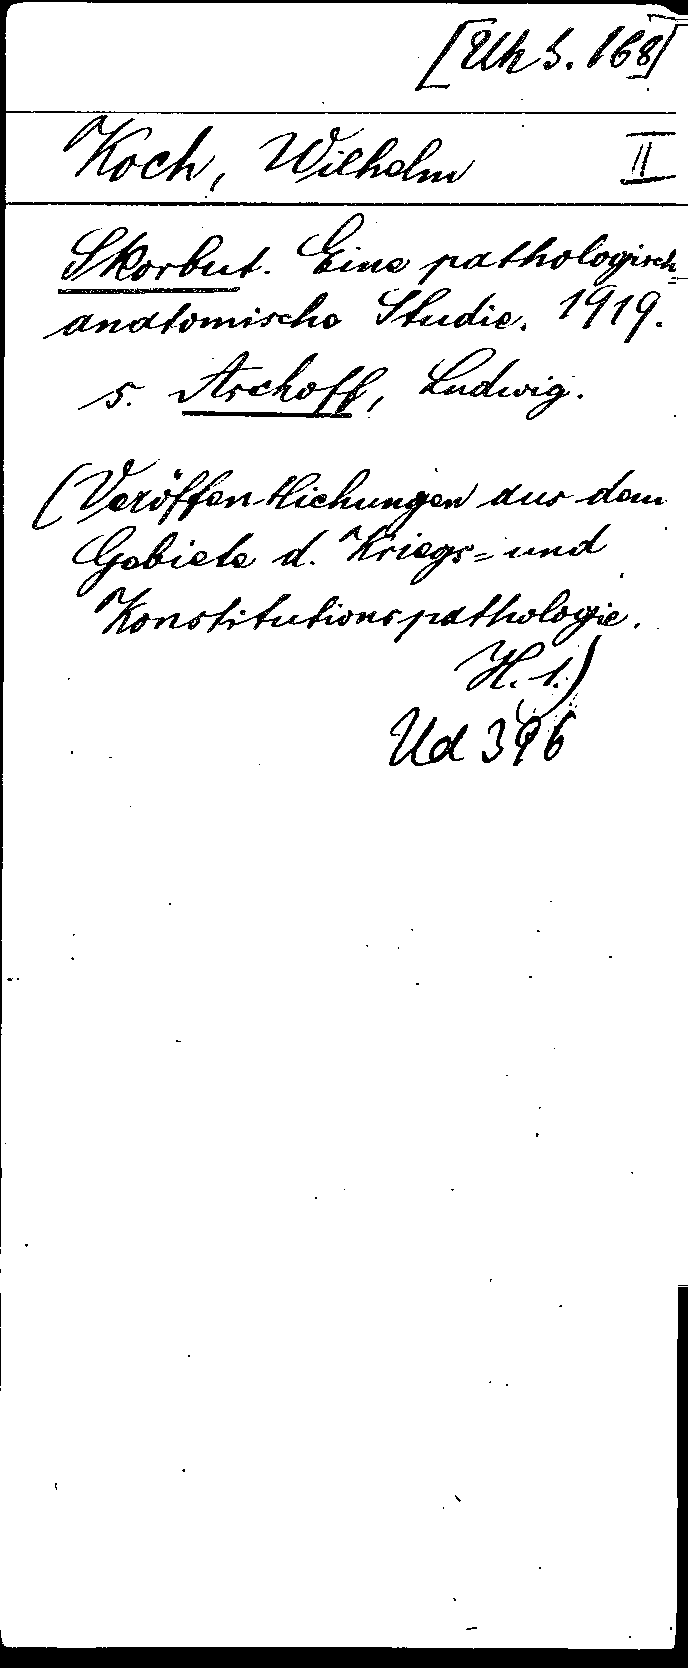 [Uk S. 168]
Koch, Wilhelm II
Skorbut. Eine pathologisch=
anatomische Studie. 1919.
s. Aschoff, Ludwig.
(Veröffentlichungen aus dem
Gebiete d. Kriegs= und
Konstitutionspathologie.
H. 1.)
Ud 396